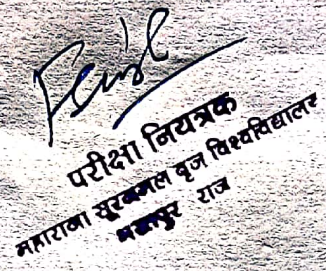 परीक्षा नियंत्रक
महाराजा सूरजमल बृज विश्वविद्यालय
भरतपुर राज